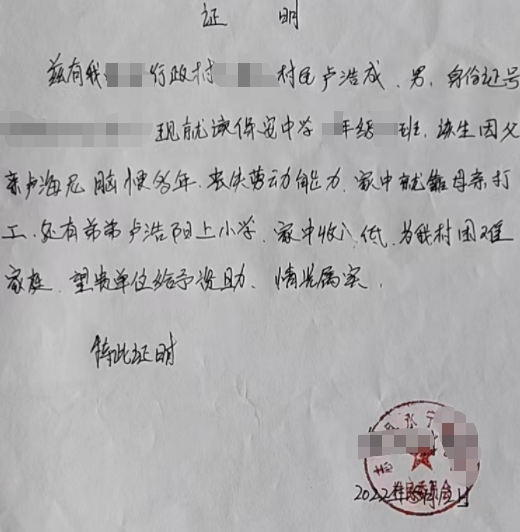 证 明
兹有我 行政村 村民卢浩成、男、身份证号
现就读保安中学 年级 班，该生因父
亲卢海尼脑梗多年、丧失劳动能力、家中就靠母亲打
工、还有弟弟卢浩阳上小学、家中收入低、为我村困难
家庭、望贵单位给予资助、情况属实、
特此证明
2022